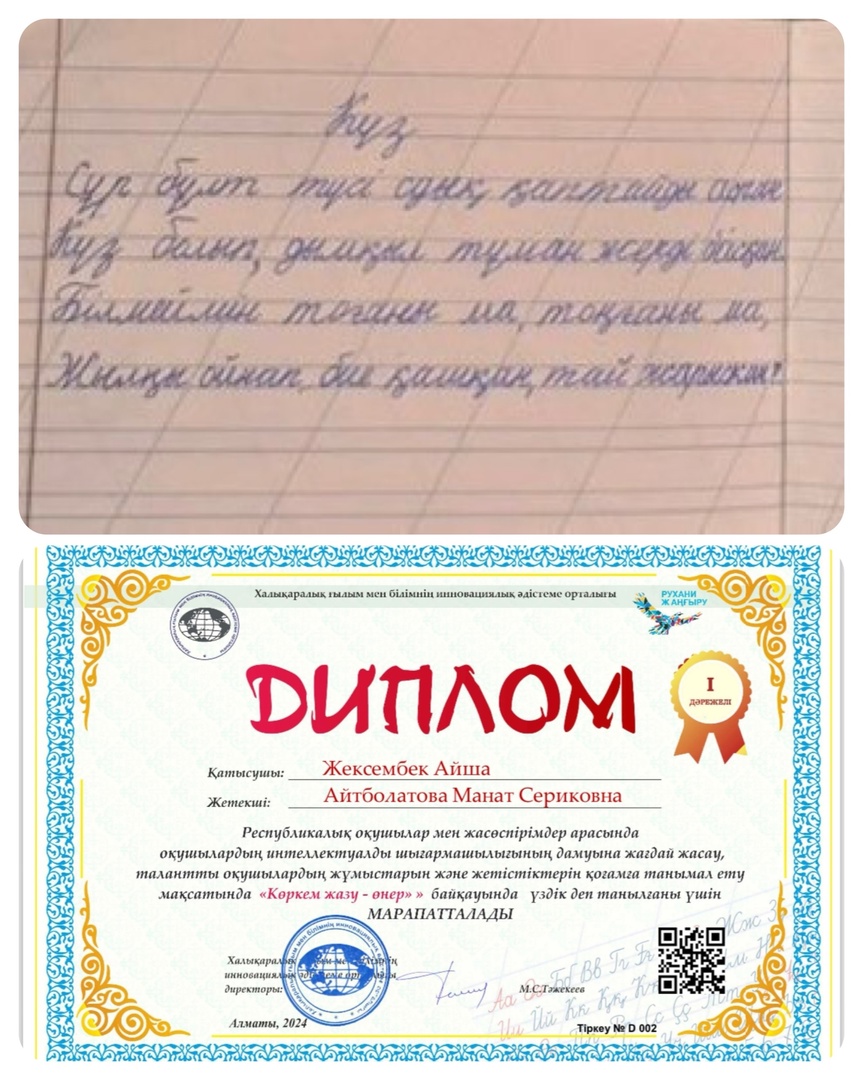 Күз
Сұр бұлт түсі суық қаптайды аспан
Күз болып, дымқыл тұман жерді басқан
Білмеймін тойғаны ма, тоңғаны ма,
Жылқы ойнап, бие қашқан, тай жарысқан?
Халықаралық ғылым мен білімнің инновациялық әдістеме орталығы
РУХАНИ
ЖАҢҒЫРУ
ДИПЛОМ
I
ДӘРЕЖЕЛІ
Қатысушы: Жексембек Айша
Жетекші: Айтболатова Манат Сериковна
Республикалық оқушылар мен жасөспірімдер арасында
оқушылардың интеллектуалды шығармашылығының дамуына жағдай жасау,
талантты оқушылардың жұмыстарын және жетістіктерін қоғамға танымал ету
мақсатында «Көркем жазу - өнер» » байқауында үздік деп танылғаны үшін
МАРАПАТТАЛАДЫ
Халықаралық ғылым мен білімнің
инновациялық әдістеме орталығы
директоры: М.С.Тәжекеев
Алматы, 2024
Тіркеу № D 002